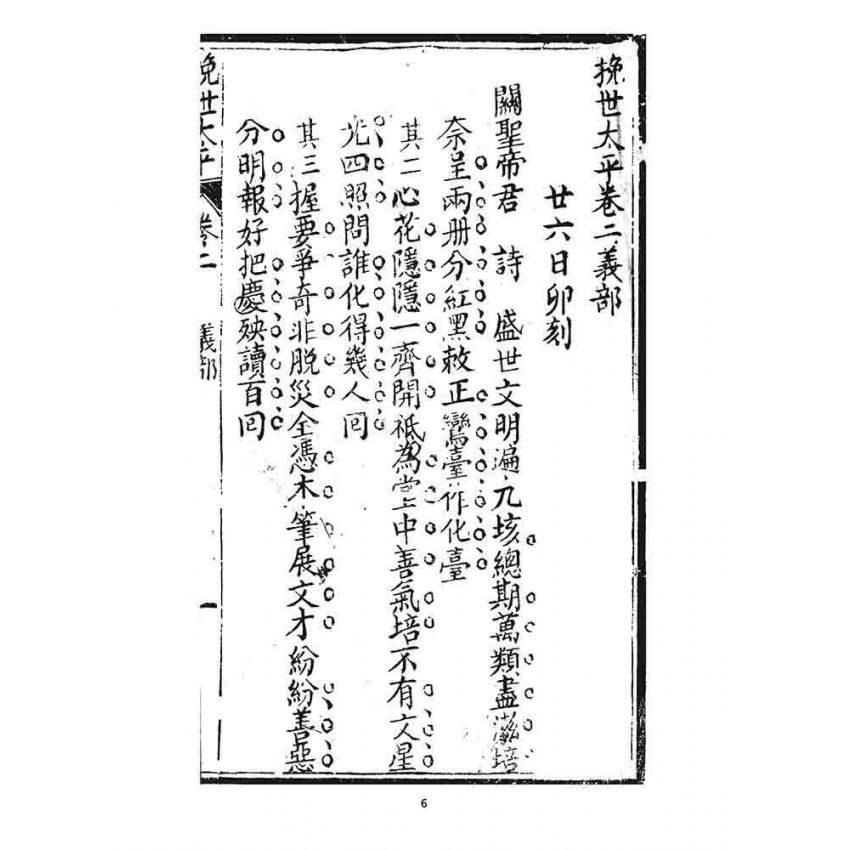 挽世太平卷二義部
廿六日卯刻
關聖帝君　詩　盛世文明遍九垓總期萬類盡滋培
奈呈兩册分紅黑敕正鸞臺作化臺
其二心花隱隱一齊開祗為堂中善氣培不有文星
光四照問誰化得幾人回
其三握要爭奇非脱災全憑木筆展文才紛紛善惡
分明報好把慶殃讀百回
挽世太平　卷二　義部　一
6